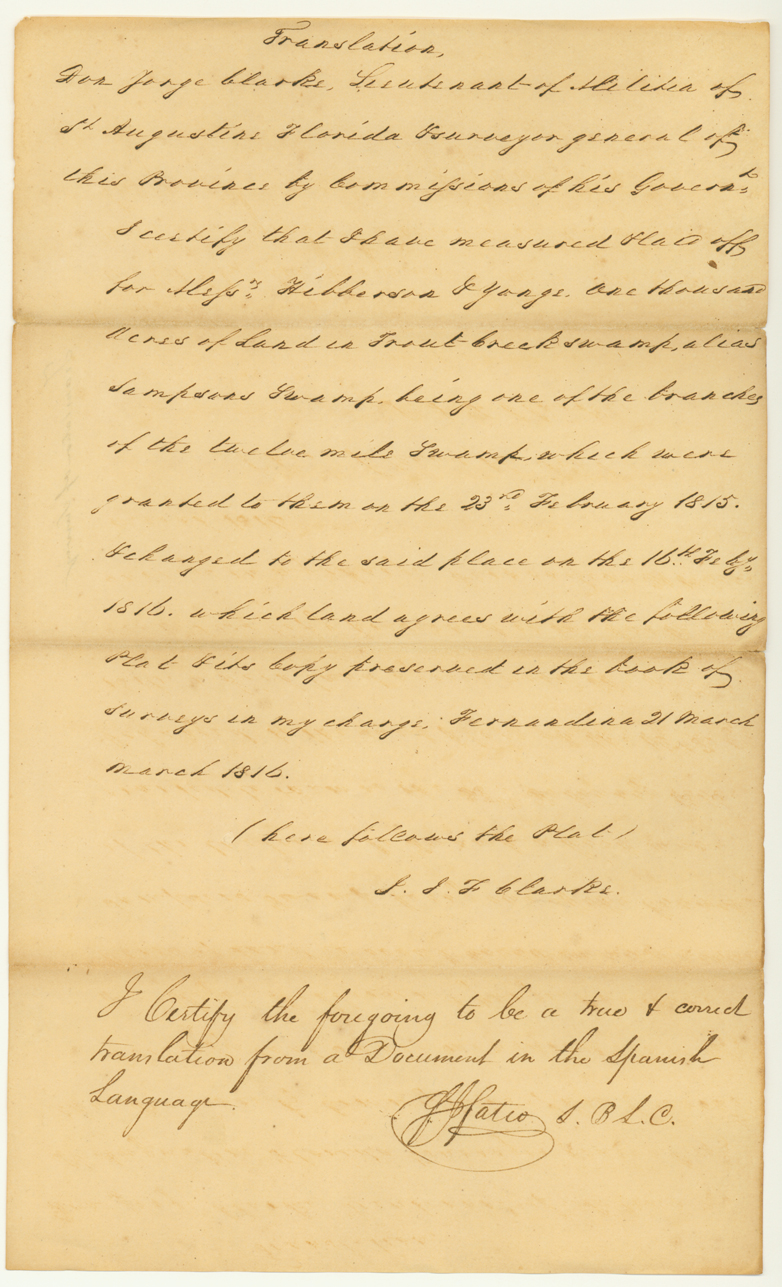 Translation,
Don Jorge Clarke, Lieutenant of Militia of
St Augustine Florida & surveyor general of
this Province by Commissions of his Governt.
I certify that I have measured & laid off
for Messrs. Hibberson & Yonge. One thousand
Acres of Land in Trout Creek swamp, alias
Sampsons Swamp, being one of the branches
of the twelve mile Swamp, which were
granted to them on the 23rd. February 1815.
& changed to the said place on the 16th. Feby.
1816. which land agrees with the following
Plat & its Copy preserved in the book of
surveys in my charge; Fernandina 21 March
March 1816.
(here follows the Plat)
J. F Clarke.
I Certify the foregoing to be a true & correct
translation from a Document in the Spanish
Language.
S. B L. C.